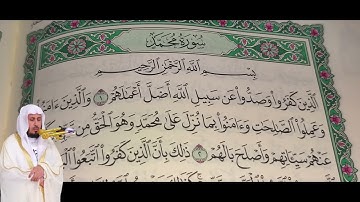 سُورَةُ مُحَمَّدٍ
بِسْمِ ٱللَّهِ ٱلرَّحْمَٰنِ ٱلرَّحِيمِ
ٱلَّذِينَ كَفَرُوا۟ وَصَدُّوا۟ عَن سَبِيلِ ٱللَّهِ أَضَلَّ أَعْمَٰلَهُمْ ١ وَٱلَّذِينَ ءَامَنُوا۟
وَعَمِلُوا۟ ٱلصَّٰلِحَٰتِ وَءَامَنُوا۟ بِمَا نُزِّلَ عَلَىٰ مُحَمَّدٍ وَهُوَ ٱلْحَقُّ مِن
عَنْهُمْ سَيِّـَٔاتِهِمْ وَأَصْلَحَ بَالَهُمْ ٢ ذَٰلِكَ بِأَنَّ ٱلَّذِينَ كَفَرُوا۟ ٱتَّبَعُوا۟